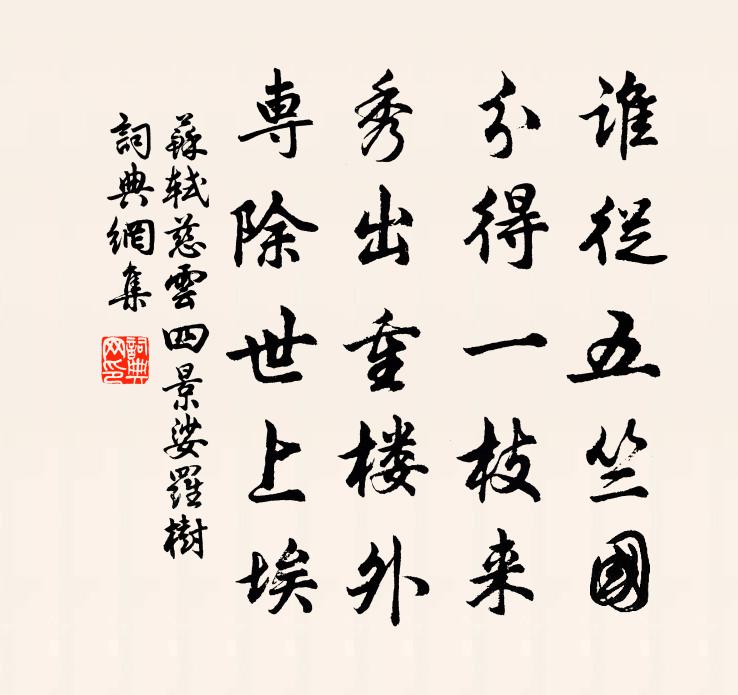 誰從五竺國
分得一枝来
秀出重楼外
専除世上埃
蘇軾慈雲四景娑羅樹
詞典網集
詞典网印